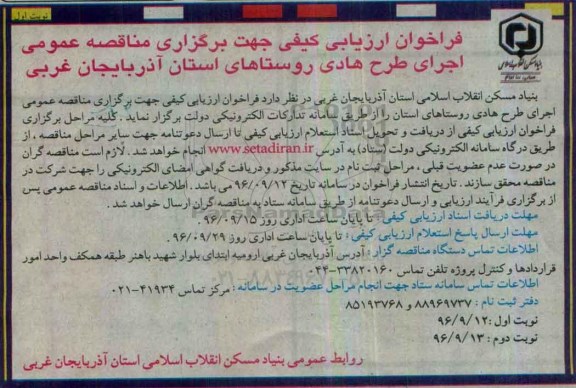 نوبت اول
فراخوان ارزیابی کیفی جهت برگزاری مناقصه عمومی
اجرای طرح هادی روستاهای استان آذربایجان غربی
بنیاد مسکن انقلاب اسلامی
بنیاد مسکن انقلاب اسلامی استان آذربایجان غربی در نظر دارد فراخوان ارزیابی کیفی جهت برگزاری مناقصه عمومی
اجرای طرح هادی روستاهای استان را از طریق سامانه تدارکات الکترونیکی دولت برگزار نماید . کلیه مراحل برگزاری
فراخوان ارزیابی کیفی از دریافت و تحویل اسناد استعلام ارزیابی کیفی تا ارسال دعوتنامه جهت سایر مراحل مناقصه ، از
طریق درگاه سامانه الکترونیکی دولت (ستاد) به آدرس www.setadiran.ir انجام خواهد شد . لازم است مناقصه گران
در صورت عدم عضویت قبلی ، مراحل ثبت نام در سایت مذکور و دریافت گواهی امضای الکترونیکی را جهت شرکت در
مناقصه محقق سازند . تاریخ انتشار فراخوان در سامانه تاریخ ۹۶/۰۹/۱۲ می باشد . اطلاعات و اسناد مناقصه عمومی پس
از برگزاری فرآیند ارزیابی و ارسال دعوتنامه از طریق سامانه ستاد به مناقصه گران ارسال خواهد شد .
مهلت دریافت اسناد ارزیابی کیفی : تا پایان ساعت اداری روز ۹۶/۰۹/۱۵ .
مهلت ارسال پاسخ استعلام ارزیابی کیفی : تا پایان ساعت اداری روز ۹۶/۰۹/۲۹ .
اطلاعات تماس دستگاه مناقصه گزار : آدرس آذربایجان غربی ارومیه ابتدای بلوار شهید باهنر طبقه همکف واحد امور
قراردادها و کنترل پروژه تلفن تماس ۳۳۸۲۰۱۶۰-۰۴۴
اطلاعات تماس سامانه ستاد جهت انجام مراحل عضویت در سامانه : مرکز تماس ۴۱۹۳۴-۰۲۱
دفتر ثبت نام : ۸۸۹۶۹۷۳۷ و ۸۵۱۹۳۷۶۸
نوبت اول : ۹۶/۹/۱۲
نوبت دوم : ۹۶/۹/۱۳
روابط عمومی بنیاد مسکن انقلاب اسلامی استان آذربایجان غربی